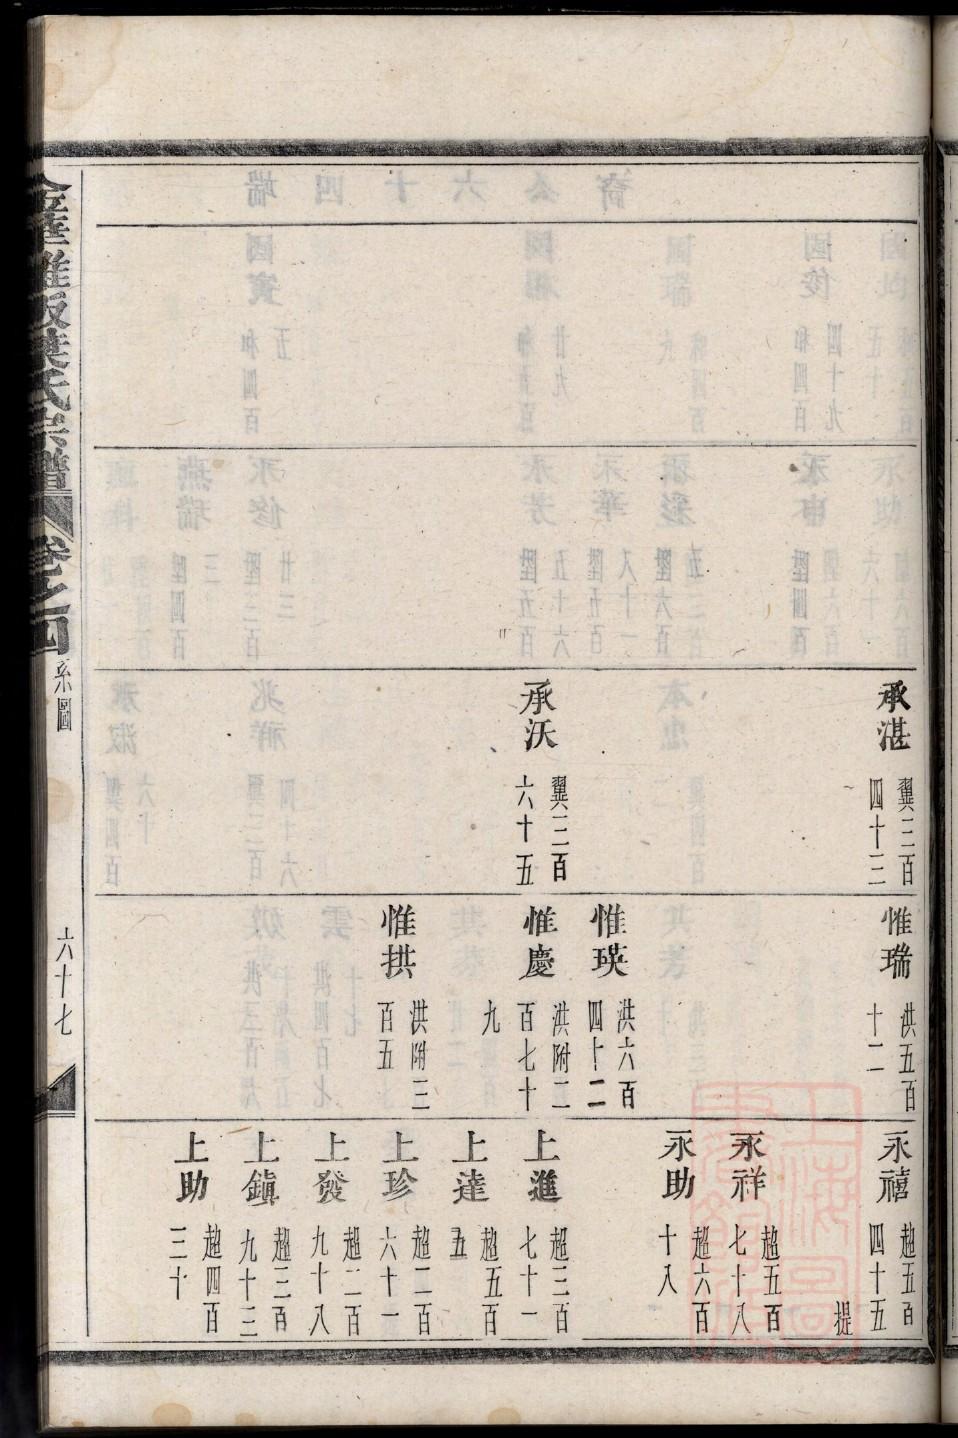 承湛
翼三百
四十三
承沃
翼三百
六十五
惟瑞
洪五百
十二
惟瑛
洪六百
四十二
惟慶
洪附二
百七十
九
惟拱
洪附三
百五
永禧
趙五百
四十五
提
永祥
趙五百
七十八
永助
趙六百
十八
上進
趙三百
七十一
上達
趙五百
五
上珍
趙二百
六十一
上發
趙二百
九十八
上鎮
趙三百
九十三
上助
趙四百
三十
氏宗譜
卷之四
系圖
六十七